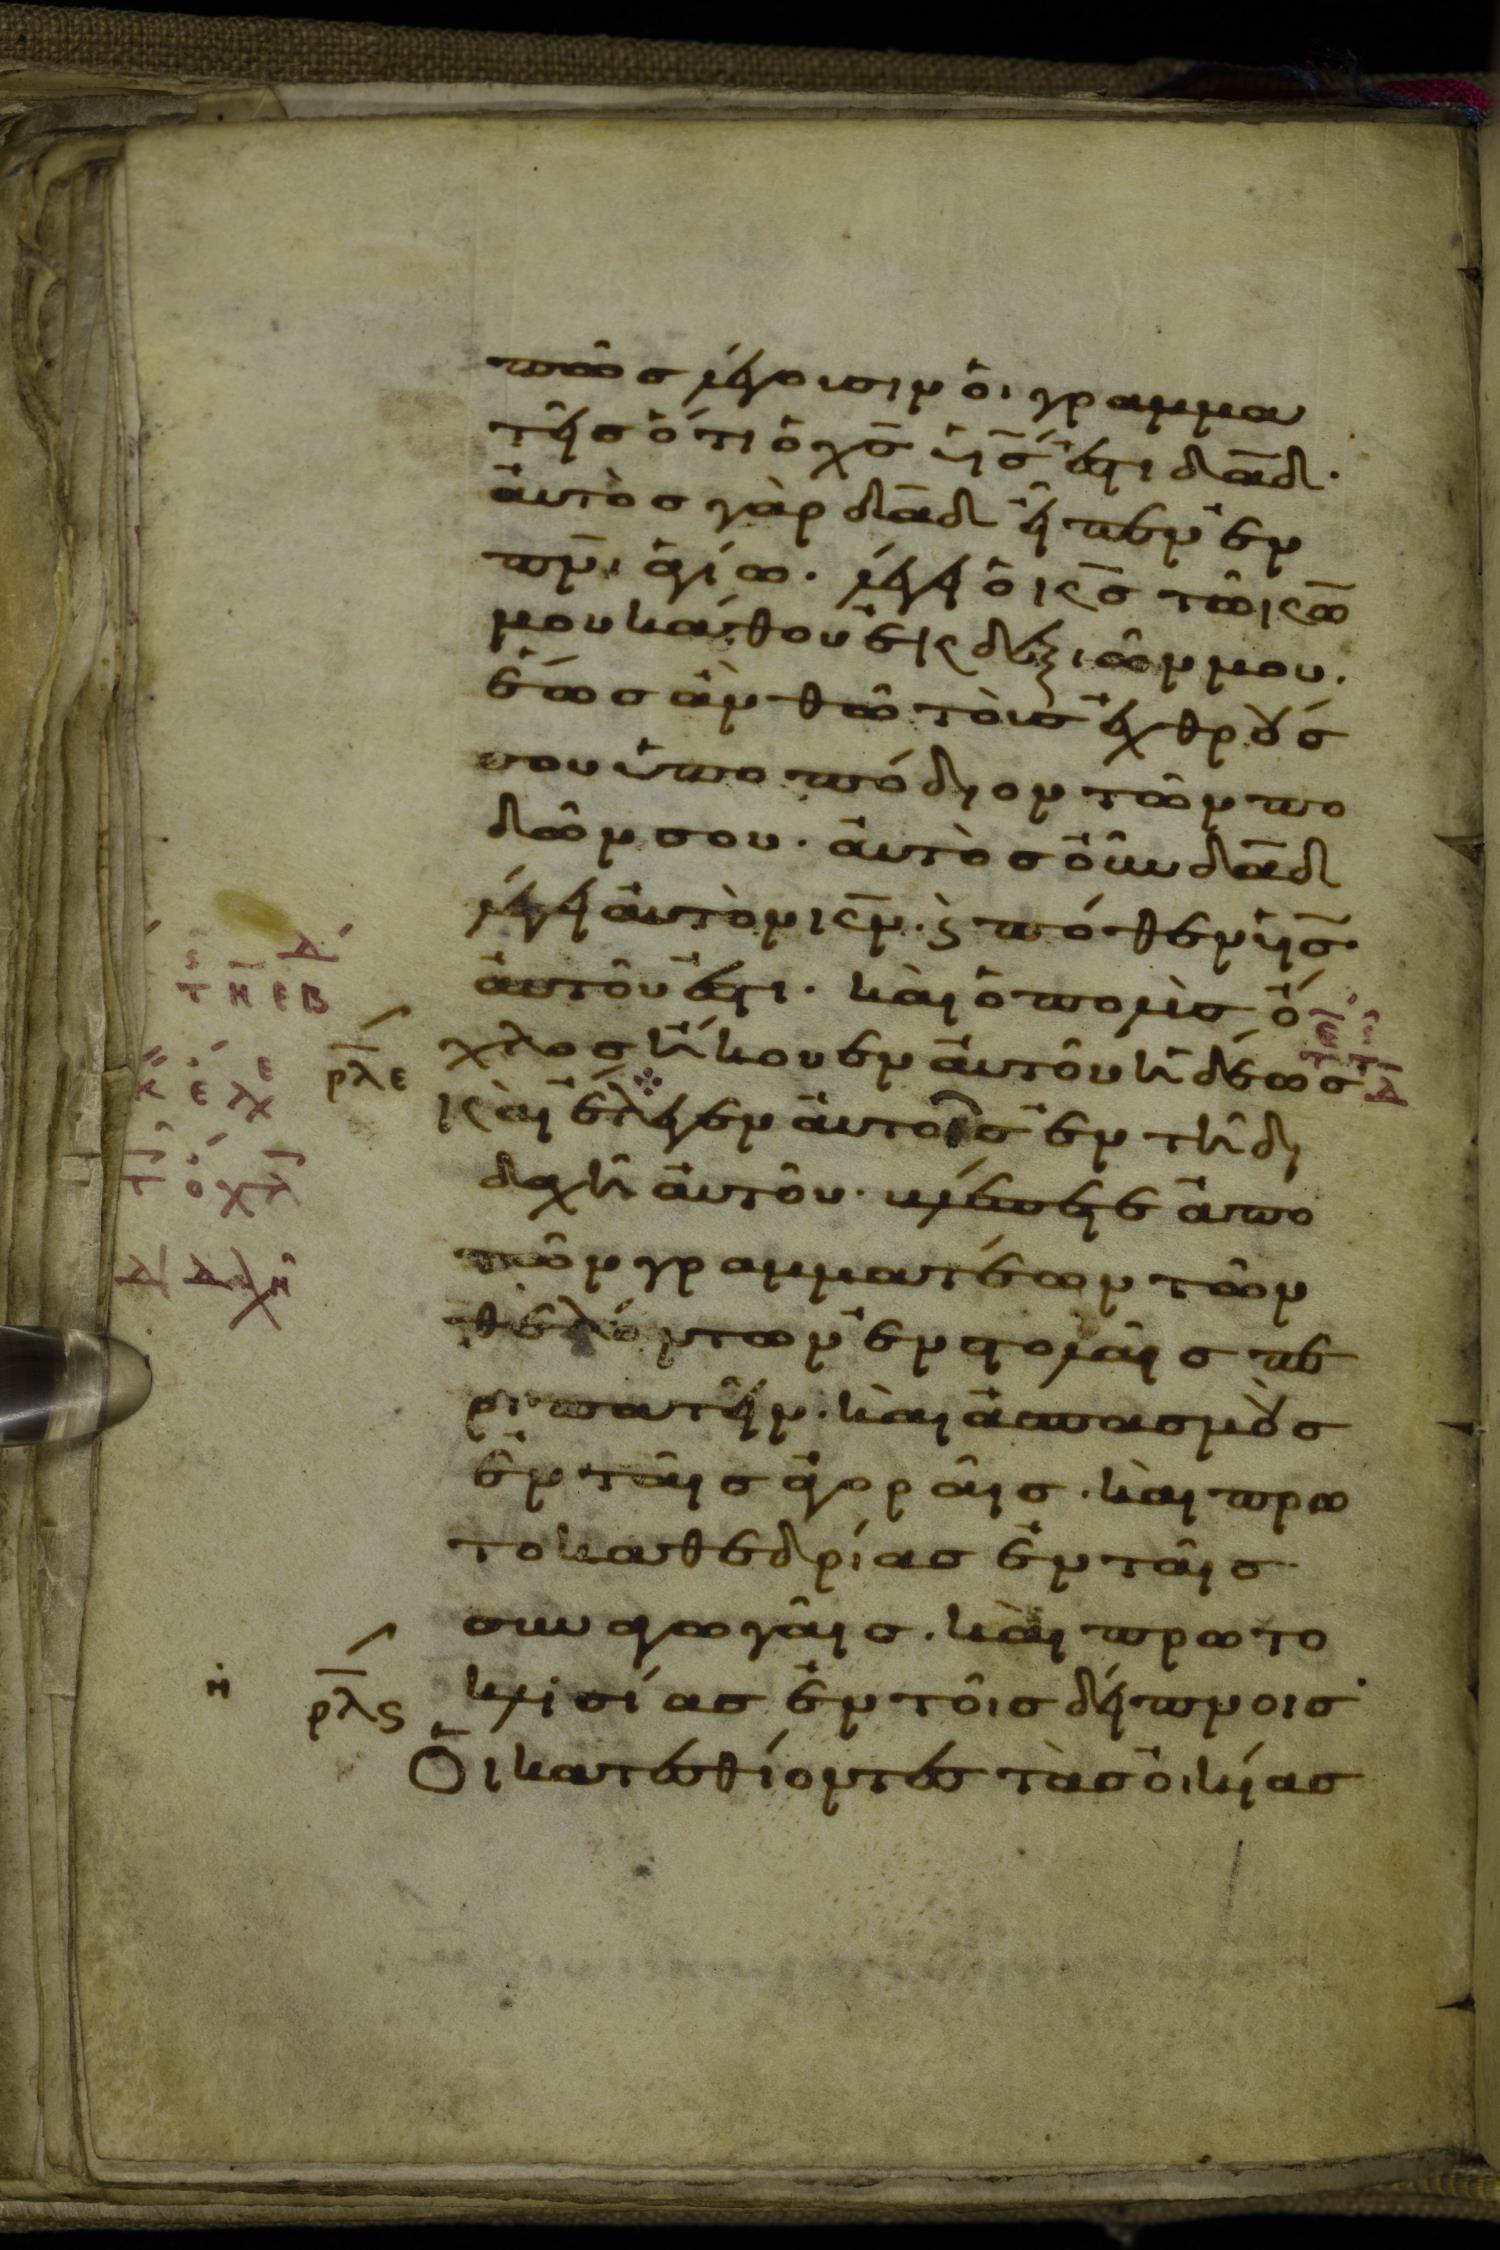 πῶς λέγουσιν ὁι γραμμα
τεῖς ὅτι ὁ χς υἱς ἐστι δαδ·
ἀυτὸς γὰρ δαδ εἶπεν ἐν
πνι ἁγίω· λέγει ὁ κς τῶ κω
μου κάθου ἐκ δεξιῶν μου·
ἕως ἂν θῶ τοὺς ἐχθρούς
σου ὑποπόδιον τῶν πο
δῶν σου· ἀυτὸς ὀῦν δαδ
λέγει ἀυτὸν κν· ϗ πόθεν υἱς
ἀυτοῦ ἐστι· καὶ ὁ πολὺς ὄ
χλος ἤκουεν ἀυτοῦ ἡδέως
ρλε
καὶ ἔλεγεν ἀυτοῖς ἐν τῆ δι
δαχῆ ἀυτοῦ· βλέπετε ἀπο
τῶν γραμματέων τῶν
θελόντων ἐν στολαῖς πε
ριπατεῖν· καὶ ἀσπασμοὺς
ἐν ταῖς ἀγοραῖς· καὶ πρω
τοκαθεδρίας ἐν ταῖς
συναγωγαῖς· καὶ πρωτο
κλισίας ἐν τοῖς δείπνοις·
ρλς
Ὁι κατεσθίοντες τὰς ὀικίας